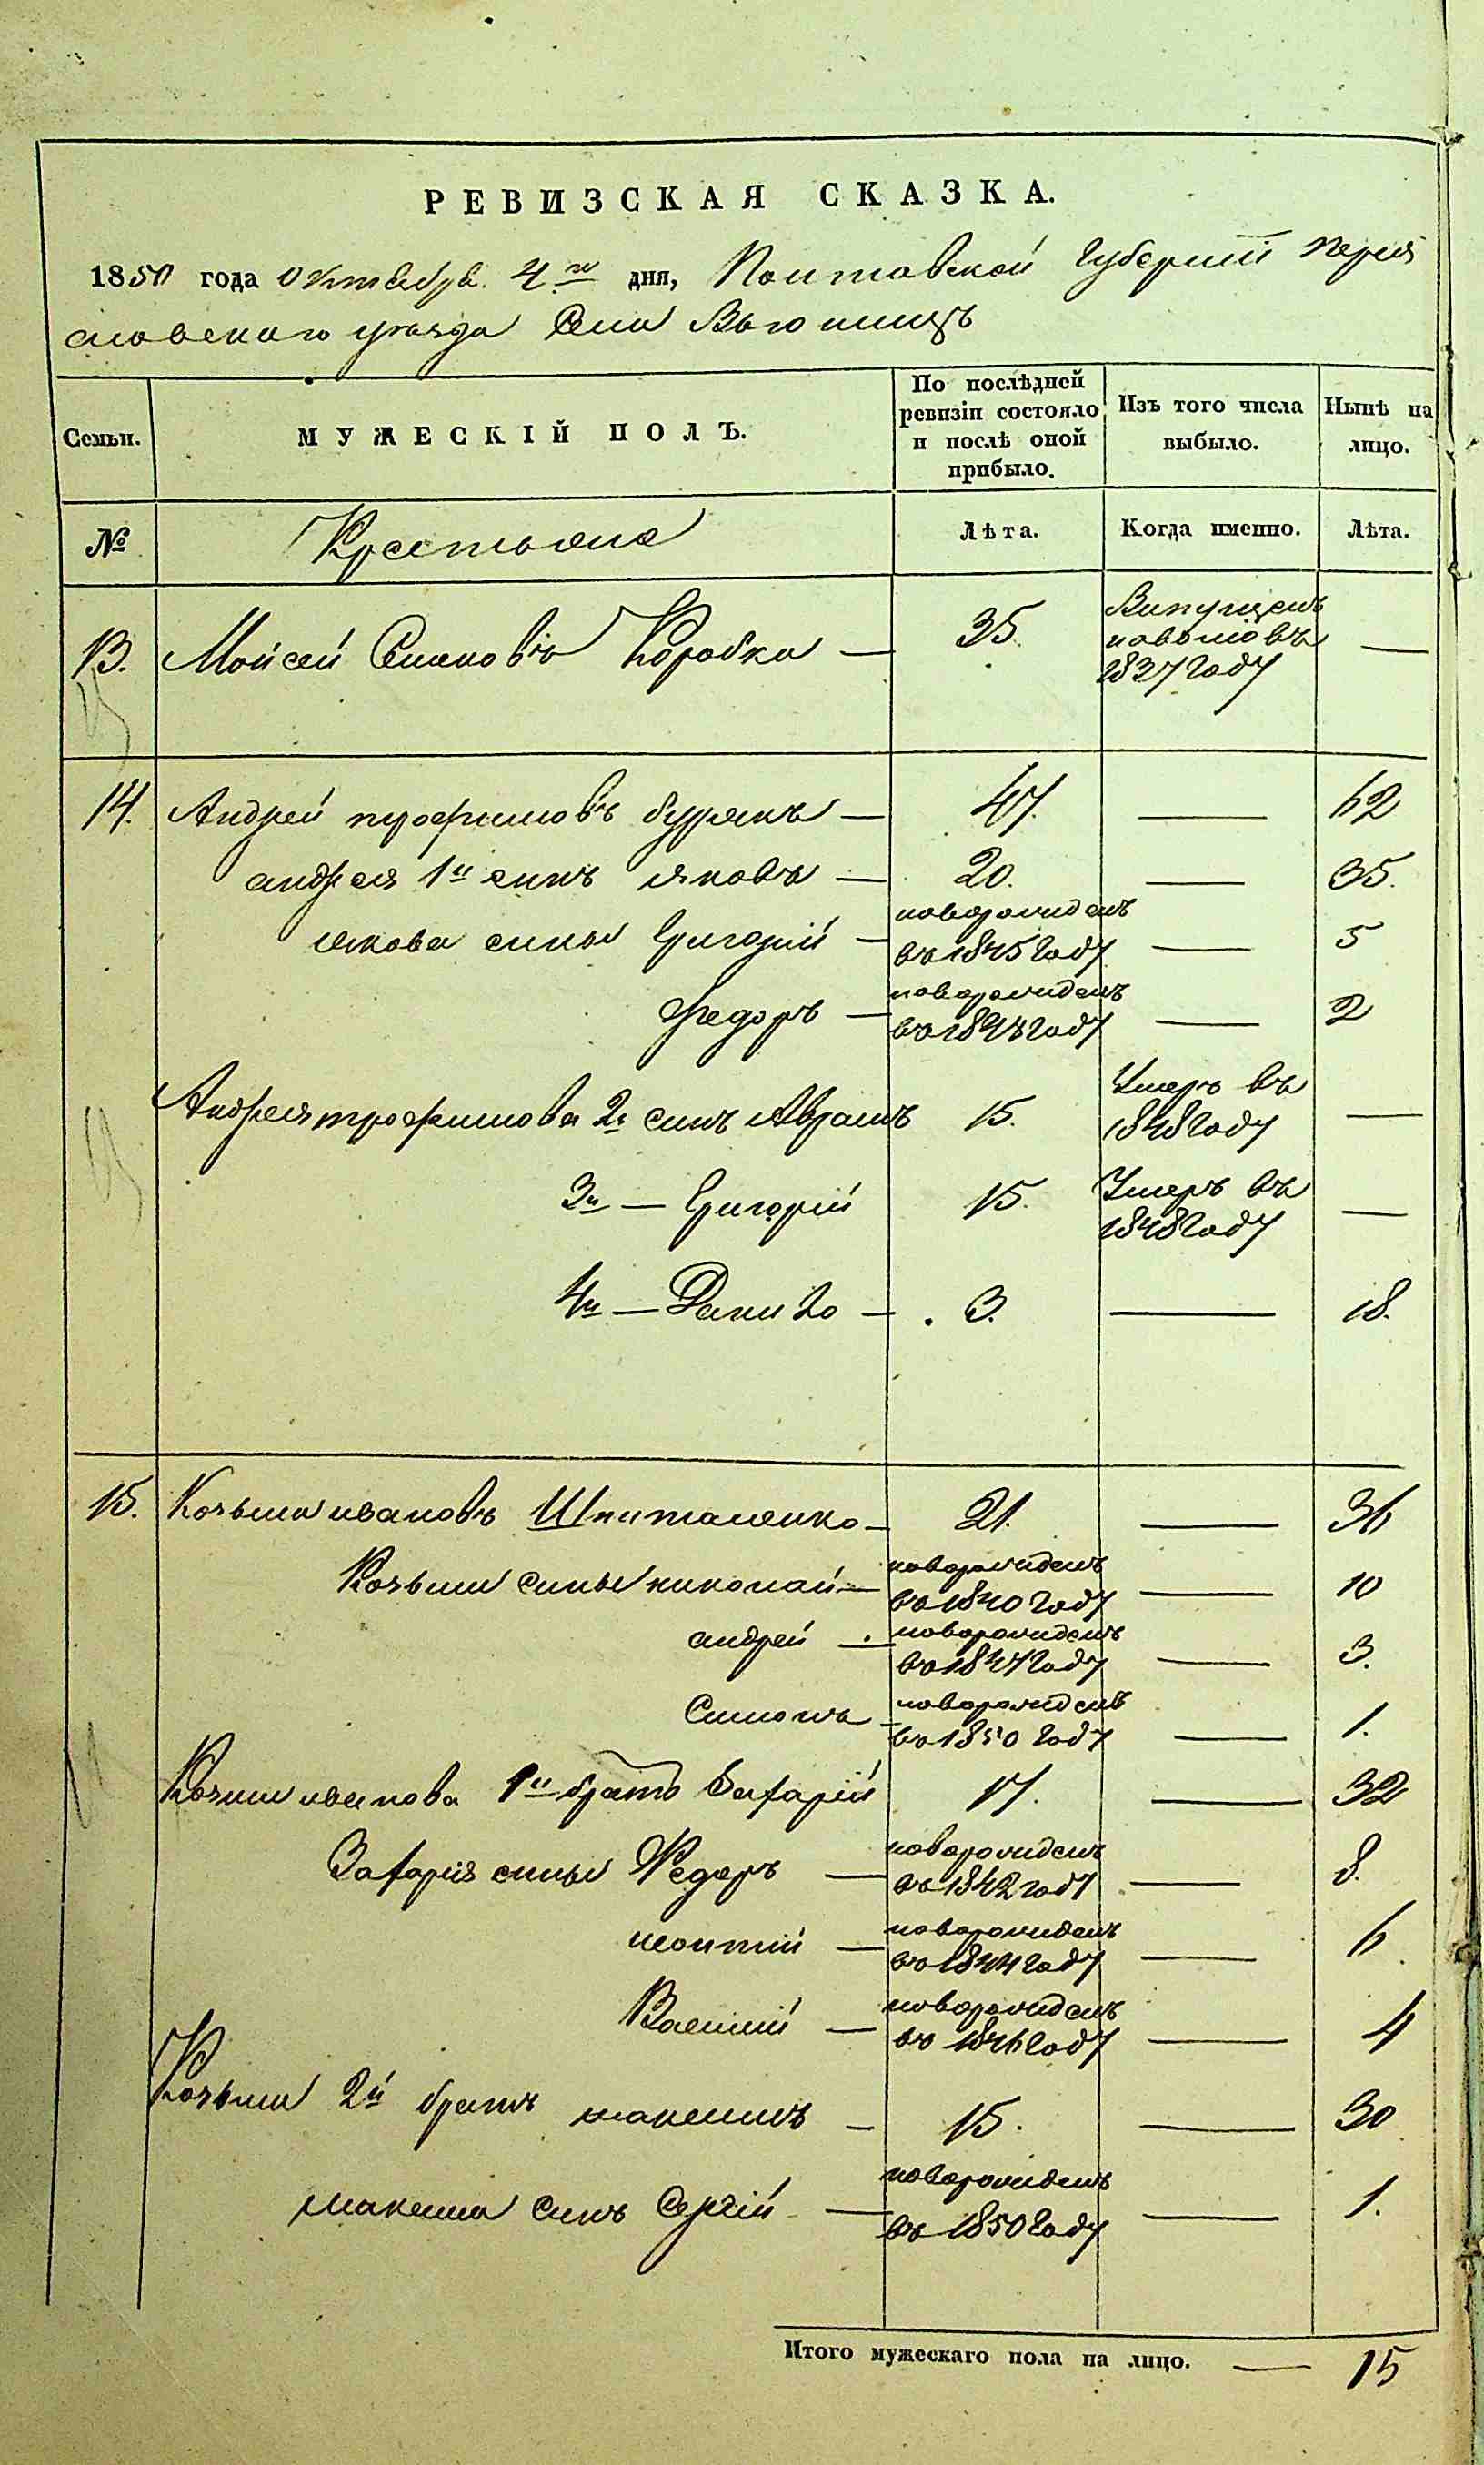 РЕВИЗСКАЯ СКАЗКА.
1850 года Октября 4го дня, Полтавской Губерніи Перея
словского уезда Села Вьюнищъ
Семьи.
МУЖЕСКІЙ ПОЛЪ.
По послѣдней ревизіи состояло и послѣ оной прибыло.
Изъ того числа выбыло.
Нынѣ на лицо.
№ Крестьяне Лѣта. Когда именно. Лѣта.
13. Мойсей Семеновъ Коробка — 35. —
в 1837 году
14. Андрей трофимовъ бурякъ — 47. — 62
андрея 1й синъ яковъ — 20. — 35.
якова сины Григорій — новорожденъ въ 1845 году — 5
Федоръ — новорожденъ въ 1848 году — 2
Андрея трофимова 2й синъ Аврамъ 15. Умеръ въ 1848 году —
3й — Григорій 15. Умеръ въ 1848 году —
4й — Данило — 3. — 18.
15. Козьма ивановъ Шпиталенко — 21. — 36
Козьми сины николай — новорожденъ въ 1840 году — 10
андрей — новорожденъ въ 1847 году — 3.
Симонъ — новорожденъ въ 1850 году — 1.
Козми иванова 1й братъ Захарій 17. — 32
Захарія сины Федоръ — новорожденъ въ 1842 году — 8.
леонтій — новорожденъ въ 1844 году — 6
Василій — новорожденъ въ 1846 году — 4
Козьми 2й братъ максимъ — 15. — 30
максима синъ Сергій — новорожденъ въ 1850 году — 1.
Итого мужескаго пола на лицо. — 15